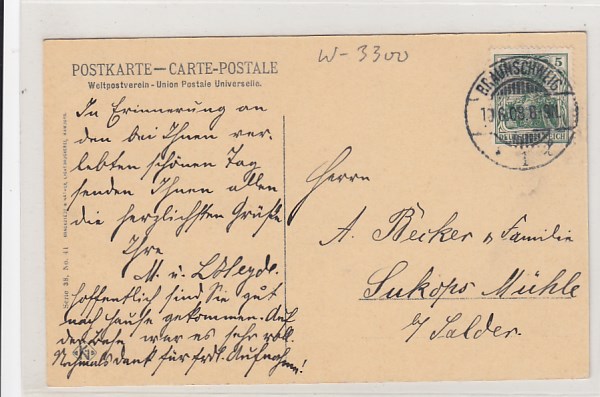 W-3300
POSTKARTE—CARTE-POSTALE
Weltpostverein - Union Postale Universelle.
BRAUNSCHWEIG
5
1
In Erinnerung an
den bei Ihnen ver-
lebten schönen Tag
senden Ihnen allen
die herzlichsten Grüße
Ihre
M. u.
hoffentlich sind Sie gut
nach Hause gekommen. Auf
der Bahn war es sehr voll.
Nochmals Dank für frdl. Aufnahme!
Herrn
A. Becker & Familie
Sukops Mühle
b/ Salder.
Serie 38, No. 11